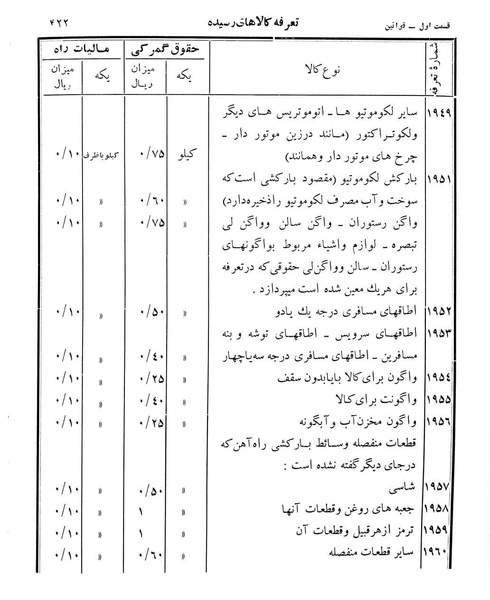 قسمت اول ـ قوانین تعرفه کالاهای رسیده ۴۲۲
شمارهٔ تعرفه نوع کالا حقوق گمرکی مالیات راه
یکه میزان ریال یکه میزان ریال
۱۹۴۹ سایر لکوموتیو ها ـ اتوموتریس های دیگر
ولکوتراکتور (مانند درزین موتور دار ـ
چرخ های موتور دار وهمانند) کیلو ۰/۷۵ کیلو باظرف ۰/۱۰
۱۹۵۱ بارکش لکوموتیو (مقصود بارکشی است که
سوخت و آب مصرف لکوموتیو راذخیره دارد) » ۰/۶۰ » ۰/۱۰
واگن رستوران ـ واگن سالن وواگن لی » ۰/۷۵ » ۰/۱۰
تبصره ـ لوازم واشیاء مربوط بواگونهای
رستوران ـ سالن وواگن لی حقوقی که در تعرفه
برای هریك معین شده است میپردازد .
۱۹۵۲ اطاقهای مسافری درجه یك یادو » ۰/۵۰ » ۰/۱۰
۱۹۵۳ اطاقهای سرویس ـ اطاقهای توشه و بنه
مسافرین ـ اطاقهای مسافری درجه سه یاچهار » ۰/۴۰ » ۰/۱۰
۱۹۵۴ واگون برای کالا بایابدون سقف » ۰/۲۵ » ۰/۱۰
۱۹۵۵ واگونت برای کالا » ۰/۴۰ » ۰/۱۰
۱۹۵۶ واگون مخزن آب و آبگونه » ۰/۲۵ » ۰/۱۰
قطعات منفصله وسائط بارکشی راه آهن که
درجای دیگر گفته نشده است :
۱۹۵۷ شاسی » ۰/۵۰ » ۰/۱۰
۱۹۵۸ جعبه های روغن وقطعات آنها » ۱ » ۰/۱۰
۱۹۵۹ ترمز از هر قبیل وقطعات آن » ۱ » ۰/۱۰
۱۹۶۰ سایر قطعات منفصله » ۰/۶۰ » ۰/۱۰